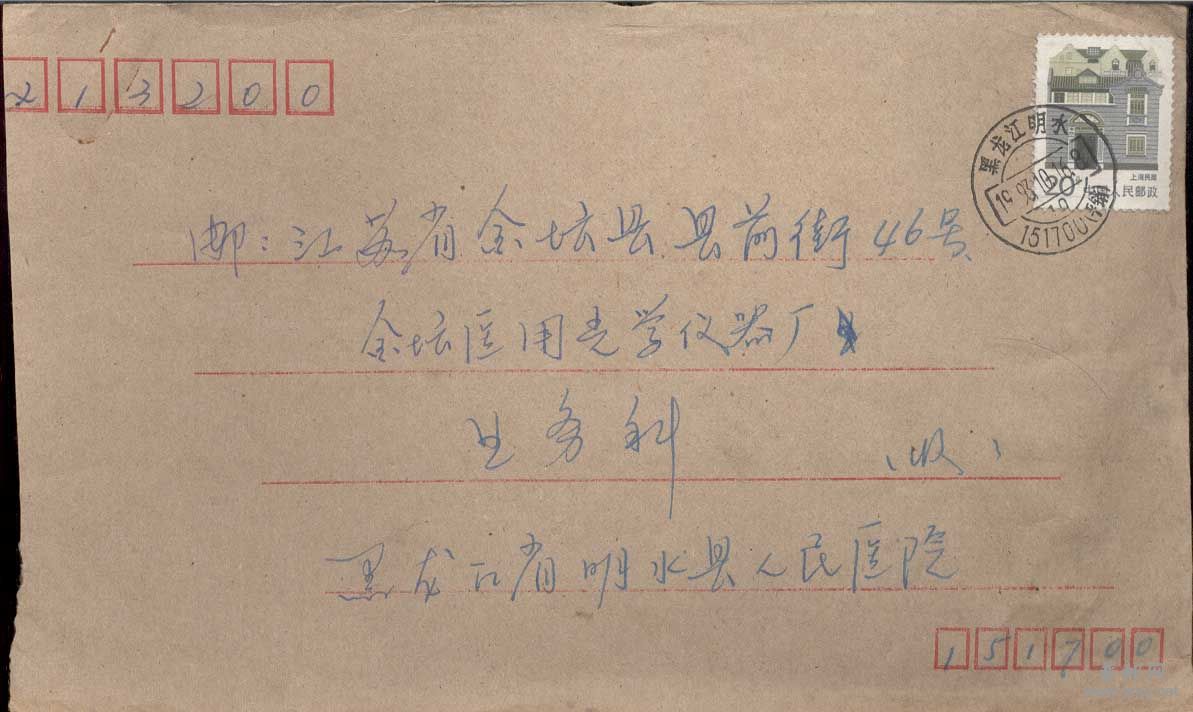 213200
上海民居
20
中国人民邮政
黑龙江明水
151700
邮：江苏省金坛县县前街46号
金坛医用光学仪器厂
业务科 （收）
黑龙江省明水县人民医院
151700